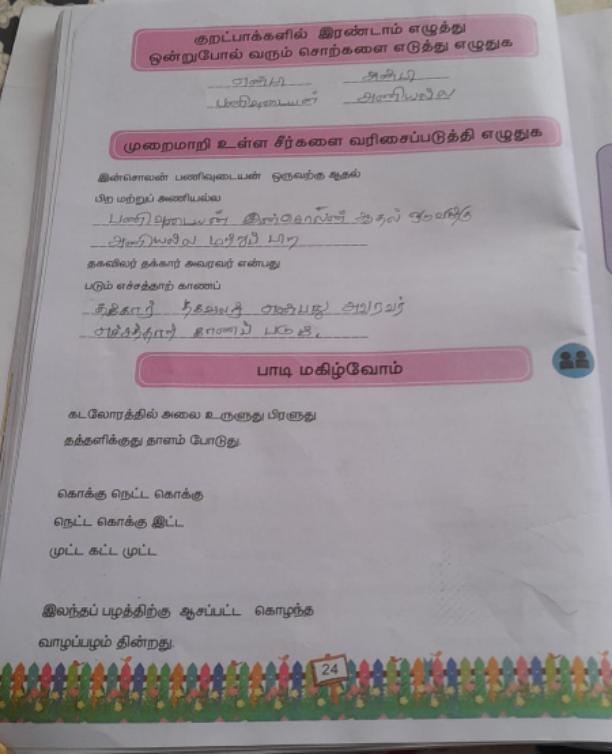 குறட்பாக்களில் இரண்டாம் எழுத்து
ஒன்றுபோல் வரும் சொற்களை எடுத்து எழுதுக
என்பு அன்பு
பணிவுடையன் அணியல்ல
முறைமாறி உள்ள சீர்களை வரிசைப்படுத்தி எழுதுக
இன்சொலன் பணிவுடையன் ஒருவற்கு ஆதல்
பிற மற்றுப் அணியல்ல
பணிவுடையன் இன்சொலன் ஆதல் ஒருவற்கு
அணியல்ல மற்றுப் பிற
தகவிலர் தக்கார் அவரவர் என்பது
படும் எச்சத்தாற் காணப்
தக்கார் தகவிலர் என்பது அவரவர்
எச்சத்தாற் காணப் படும்.
பாடி மகிழ்வோம்
கடலோரத்தில் அலை உருளுது பிரளுது
தத்தளிக்குது தாளம் போடுது.
கொக்கு நெட்ட கொக்கு
நெட்ட கொக்கு இட்ட
முட்ட கட்ட முட்ட
இலந்தப் பழத்திற்கு ஆசப்பட்ட கொழந்த
வாழப்பழம் தின்றது.
24